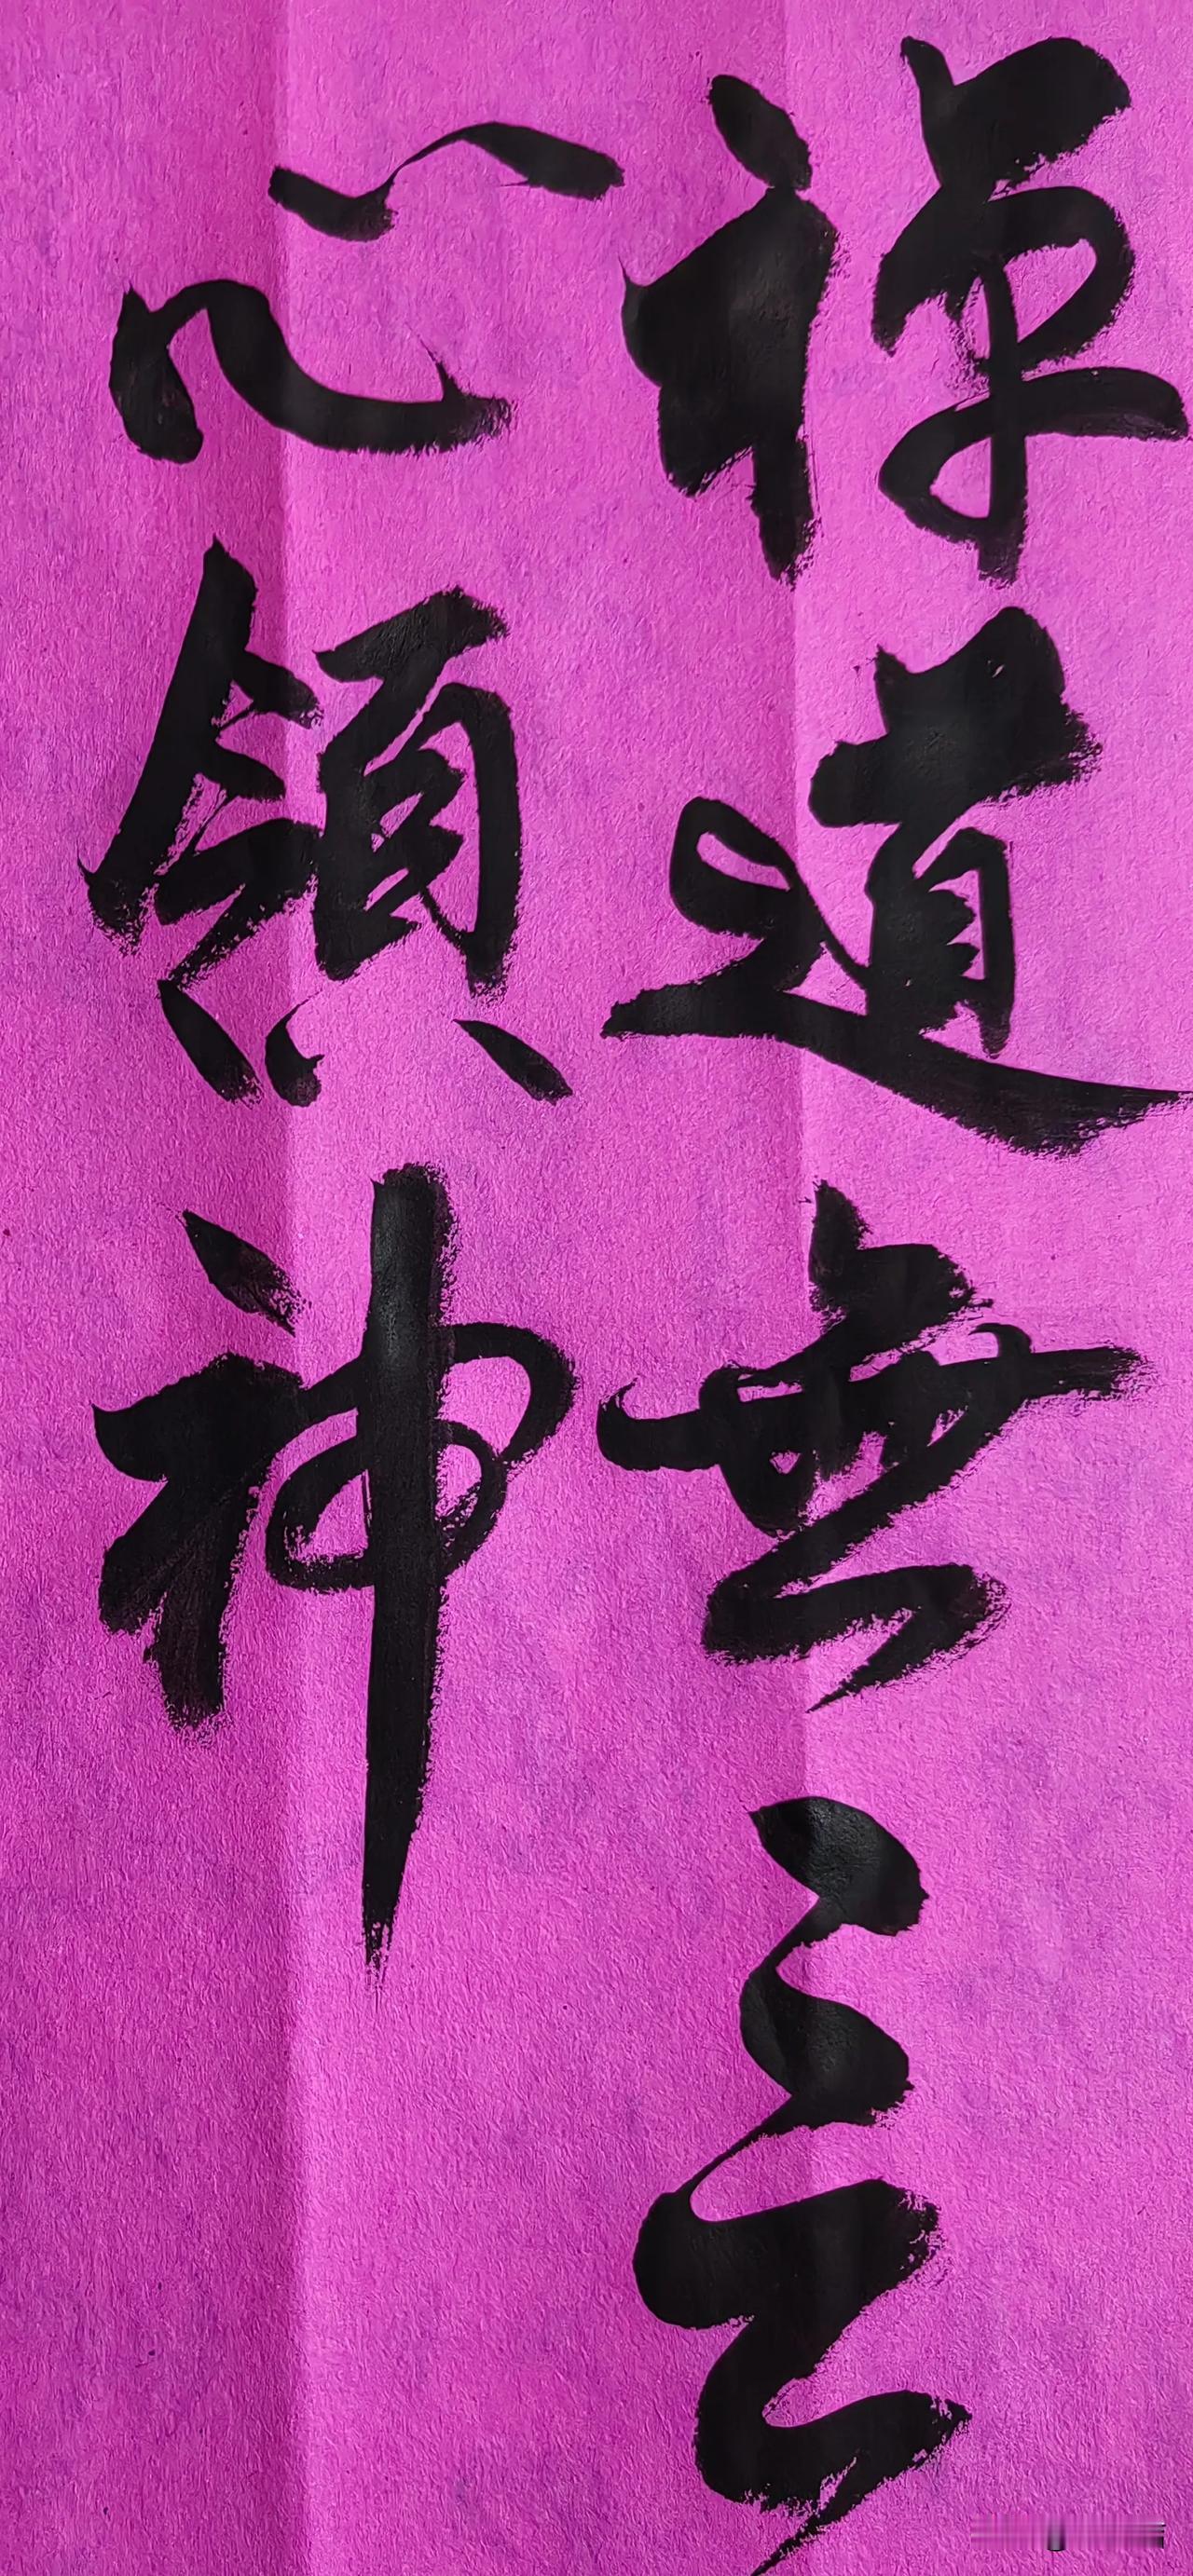 禪道無言
心領神